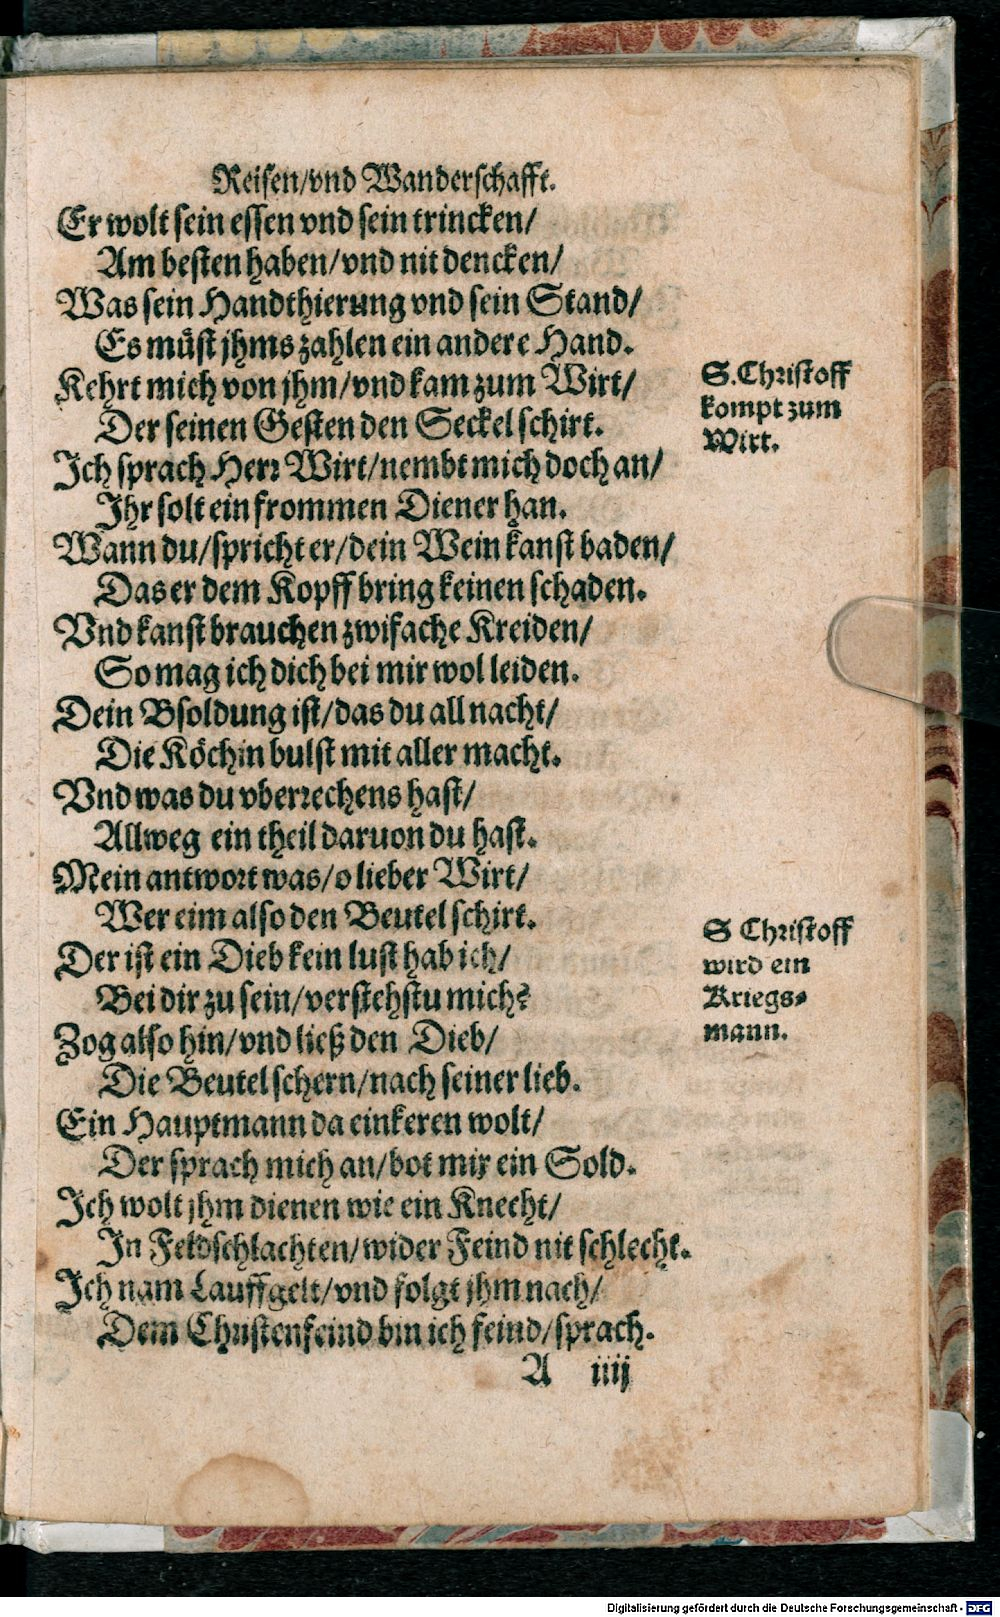 Reisen/vnd Wanderschafft.
Er wolt sein essen vnd sein trincken/
Am besten haben/vnd nit dencken/
Was sein Handthierung vnd sein Stand/
Es müst jhms zahlen ein andere Hand.
Kehrt mich von jhm/vnd kam zum Wirt/
Der seinen Gesten den Seckel schirt.
Ich sprach Herr Wirt/nembt mich doch an/
Ihr solt ein frommen Diener han.
Wann du/spricht er/dein Wein kanst baden/
Das er dem Kopff bring keinen schaden.
Vnd kanst brauchen zwifache Kreiden/
So mag ich dich bei mir wol leiden.
Dein Bsoldung ist/das du all nacht/
Die Köchin bulst mit aller macht.
Vnd was du vberrechens hast/
Allweg ein theil daruon du hast.
Mein antwort was/o lieber Wirt/
Wer eim also den Beutel schirt.
Der ist ein Dieb kein lust hab ich/
Bei dir zu sein/verstehstu mich?
Zog also hin/vnd ließ den Dieb/
Die Beutel schern/nach seiner lieb.
Ein Hauptmann da einkeren wolt/
Der sprach mich an/bot mir ein Sold.
Ich wolt jhm dienen wie ein Knecht/
In Feldschlachten/wider Feind nit schlecht.
Ich nam Lauffgelt/vnd folgt jhm nach/
Dem Christenfeind bin ich feind/sprach.
A iiij
S. Christoff
kompt zum
Wirt.
S Christoff
wird ein
Kriegs-
mann.
Digitalisierung gefördert durch die Deutsche Forschungsgemeinschaft - DFG